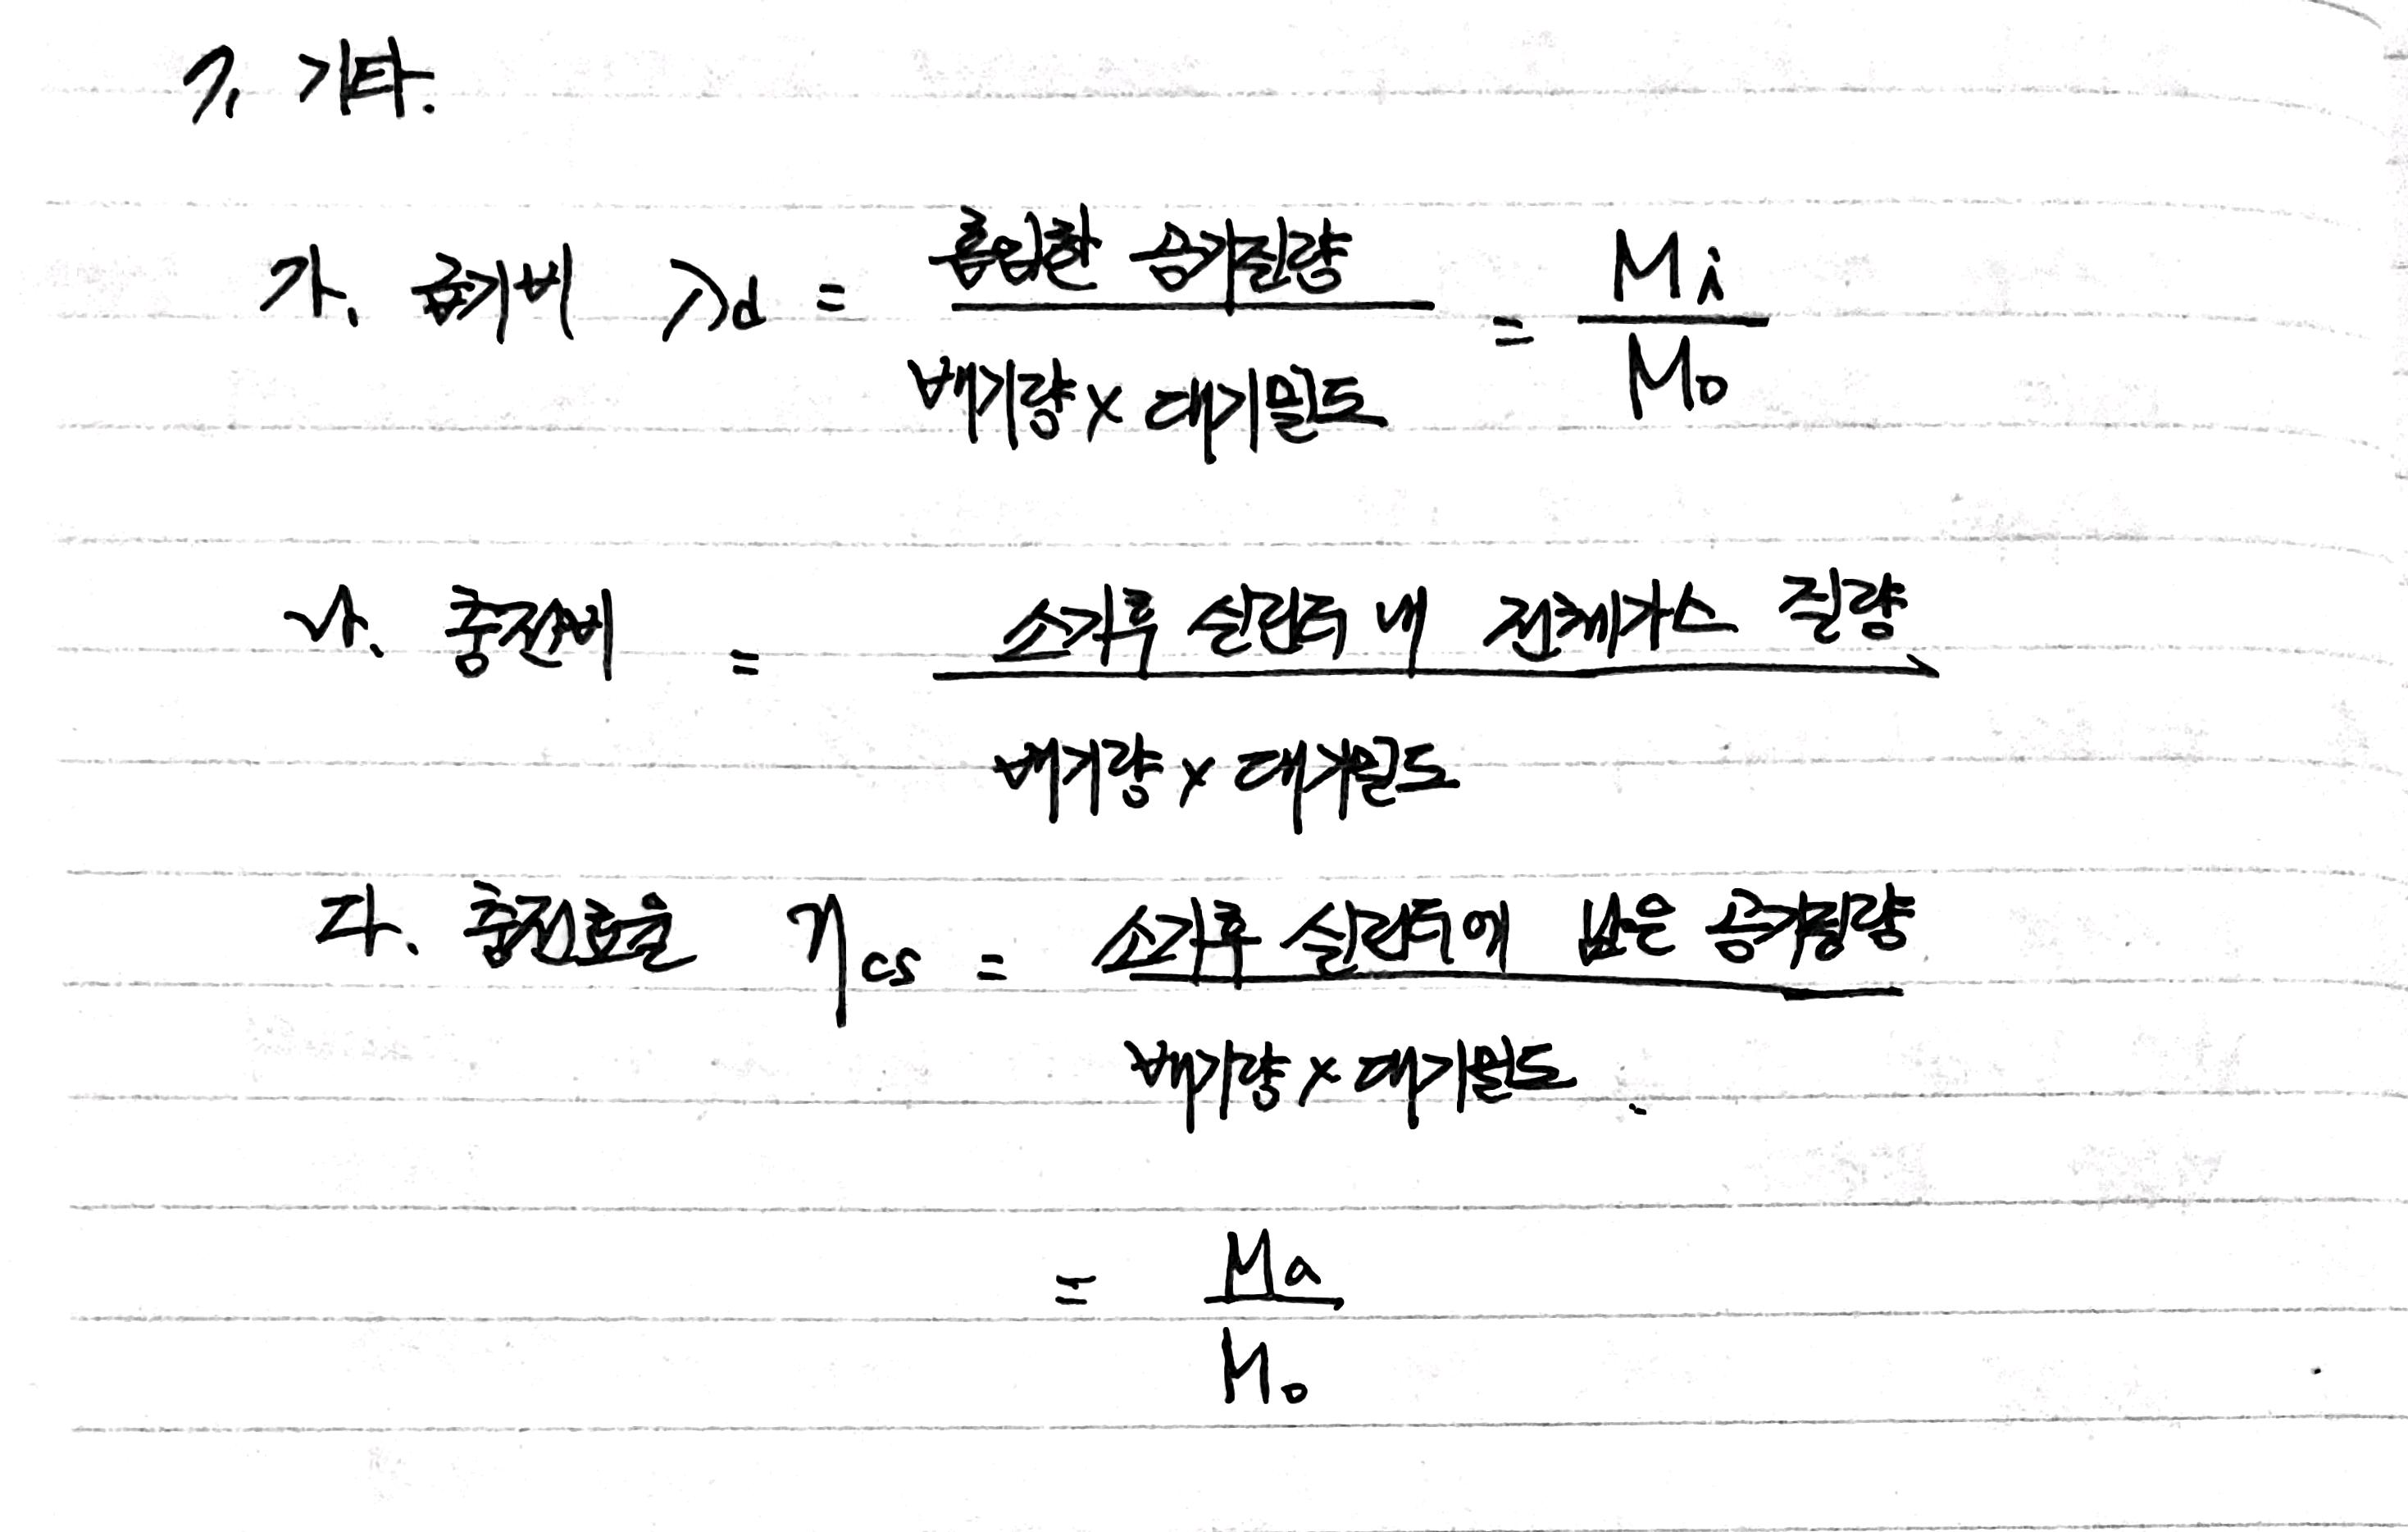 7. 기타.
가. 급기비 λd = 흡입한 공기질량 / 배기량 x 대기밀도 = Mi / Mo
나. 충전비 = 소기후 실린더 내 전체가스 질량 / 배기량 x 대기밀도
다. 충전효율 ηcs = 소기후 실린더에 남은 공기질량 / 배기량 x 대기밀도
= Ma / Mo